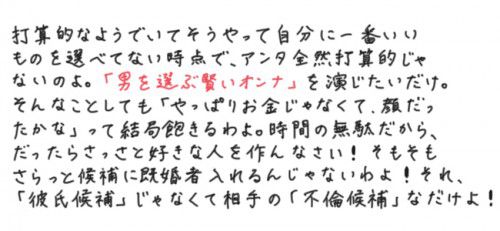 打算的なようでいてそうやって自分に一番いい
ものを選べてない時点で、アンタ全然打算的じゃ
ないのよ。「男を選ぶ賢いオンナ」を演じたいだけ。
そんなことしても「やっぱりお金じゃなくて、顔だっ
たかな」って結局飽きるわよ。時間の無駄だから、
だったらさっさと好きな人を作んなさい！そもそも
さらっと候補に既婚者入れるんじゃないわよ！それ、
「彼氏候補」じゃなくて相手の「不倫候補」なだけよ！